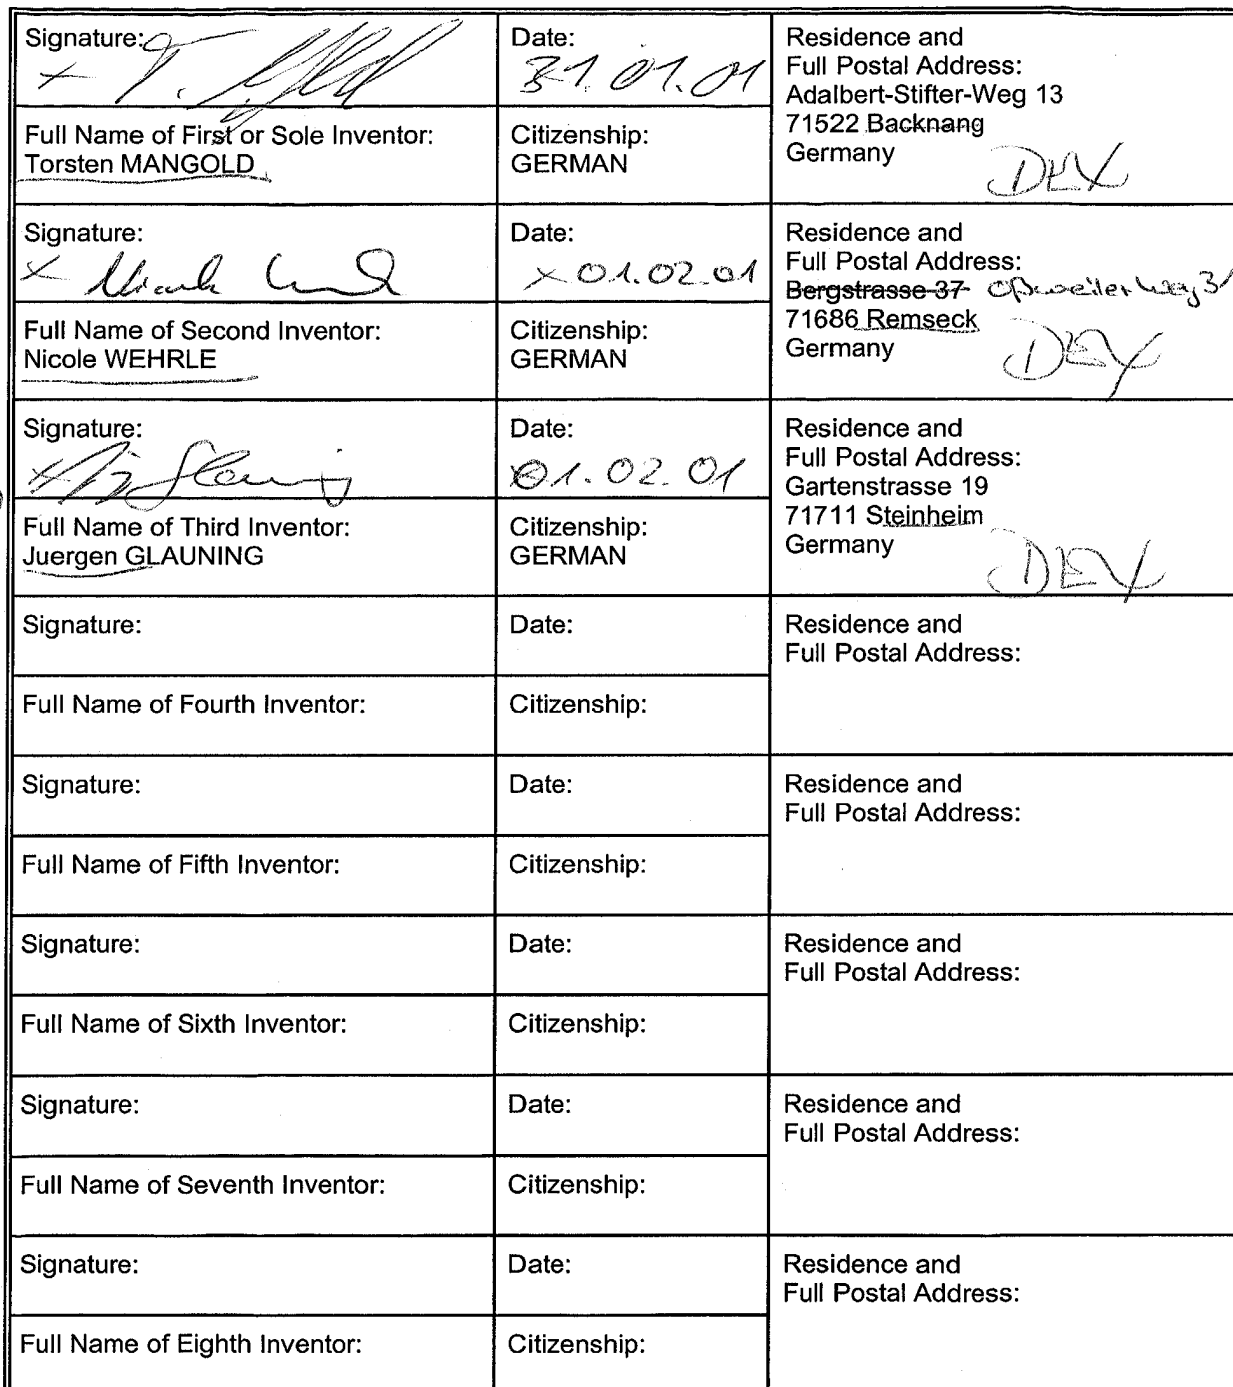 Signature:
Date:
Residence and
Full Postal Address:
Adalbert-Stifter-Weg 13
71522 Backnang
Germany
DEX
x T.
31.01.01
Full Name of First or Sole Inventor:
Torsten MANGOLD
Citizenship:
GERMAN
Signature:
Date:
Residence and
Full Postal Address:
Bergstrasse 37 Oßweiler Weg 31
71686 Remseck
Germany
DEX
x Nicole
x 01.02.01
Full Name of Second Inventor:
Nicole WEHRLE
Citizenship:
GERMAN
Signature:
Date:
Residence and
Full Postal Address:
Gartenstrasse 19
71711 Steinheim
Germany
DEX
x Glauning
01.02.01
Full Name of Third Inventor:
Juergen GLAUNING
Citizenship:
GERMAN
Signature:
Date:
Residence and
Full Postal Address:
Full Name of Fourth Inventor:
Citizenship:
Signature:
Date:
Residence and
Full Postal Address:
Full Name of Fifth Inventor:
Citizenship:
Signature:
Date:
Residence and
Full Postal Address:
Full Name of Sixth Inventor:
Citizenship:
Signature:
Date:
Residence and
Full Postal Address:
Full Name of Seventh Inventor:
Citizenship:
Signature:
Date:
Residence and
Full Postal Address:
Full Name of Eighth Inventor:
Citizenship: